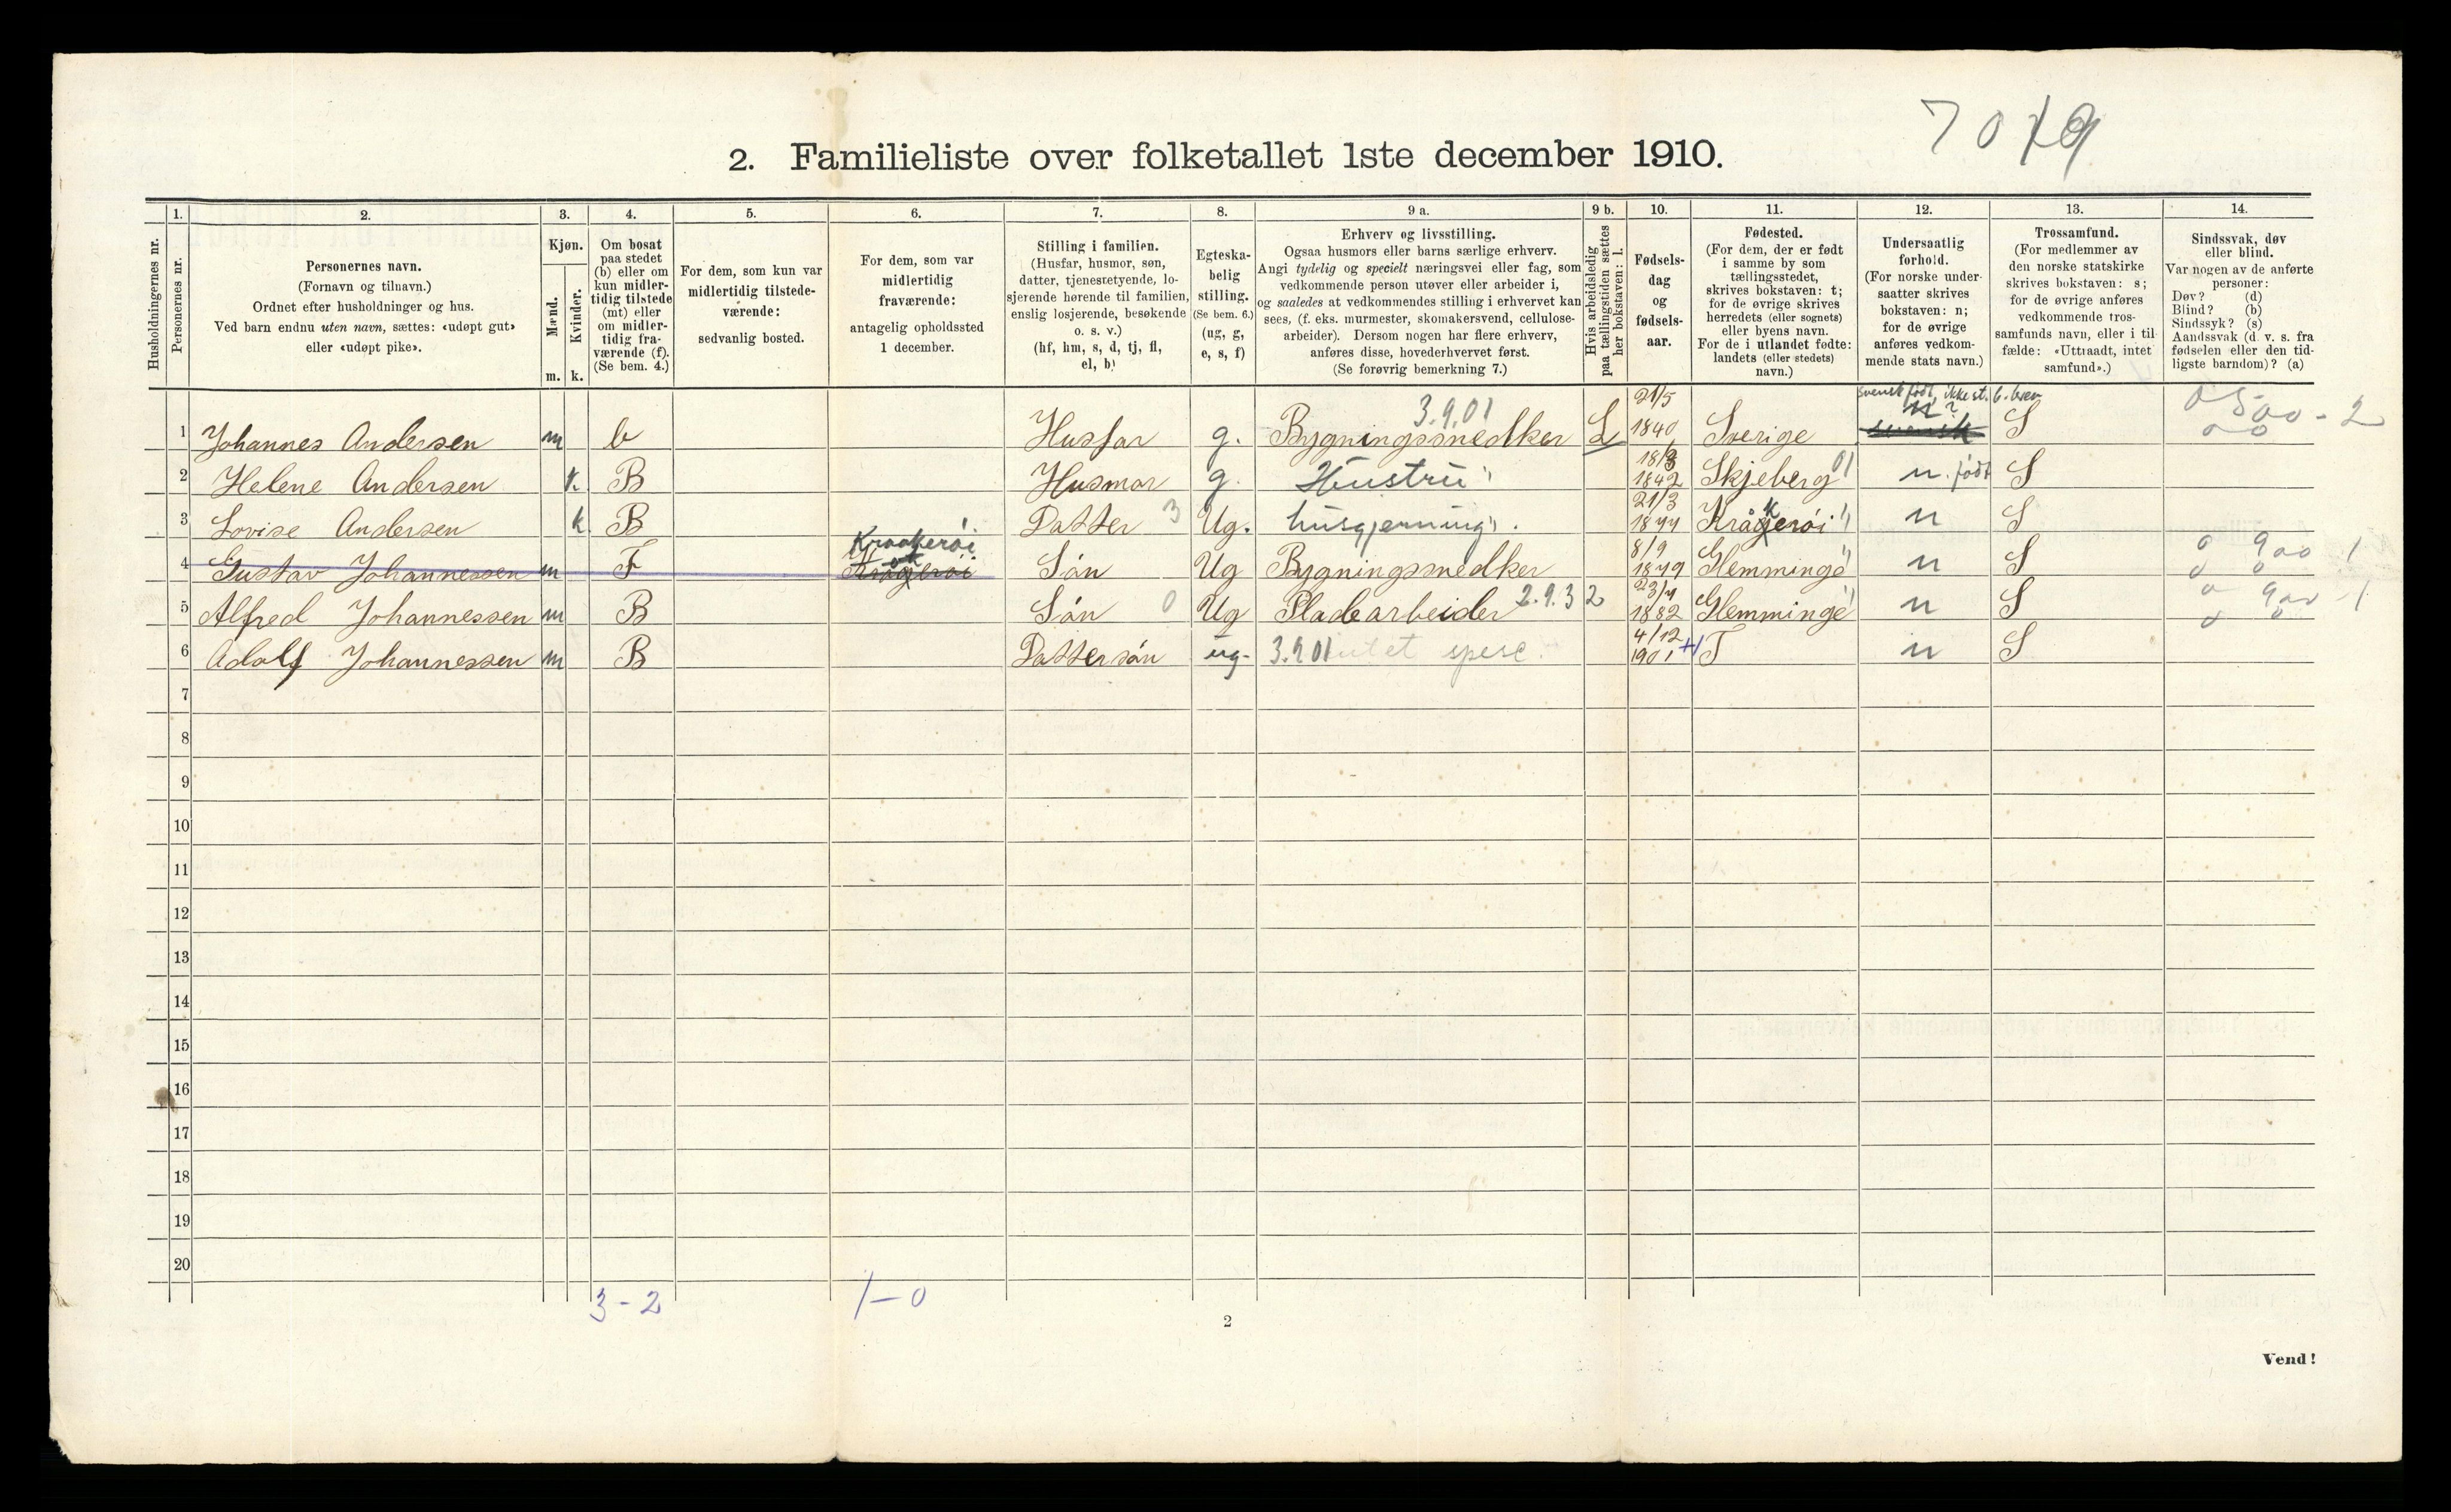 7 0
2. Familieliste over folketallet 1ste december 1910.
Husholdningernes nr.
1. Personernes nr.
2. Personernes navn. (Fornavn og tilnavn.) Ordnet efter husholdninger og hus. Ved barn endnu uten navn, sættes: «udøpt gut» eller «udøpt pike».
3. Kjøn. Mænd. m. Kvinder. k.
4. Om bosat paa stedet (b) eller om kun midlertidig tilstede (mt) eller om midlertidig fraværende (f). (Se bem. 4.)
5. For dem, som kun var midlertidig tilstedeværende: sedvanlig bosted.
6. For dem, som var midlertidig fraværende: antagelig opholdssted 1 december.
7. Stilling i familien. (Husfar, husmor, søn, datter, tjenestetyende, losjerende hørende til familien, enslig losjerende, besøkende o. s. v.) (hf, hm, s, d, tj, fl, el, b)
8. Egteskabelig stilling. (Se bem. 6.) (ug, g, e, s, f)
9 a. Erhverv og livsstilling. Ogsaa husmors eller barns særlige erhverv. Angi tydelig og specielt næringsvei eller fag, som vedkommende person utøver eller arbeider i, og saaledes at vedkommendes stilling i erhvervet kan sees, (f. eks. murmester, skomakersvend, cellulosearbeider). Dersom nogen har flere erhverv, anføres disse, hovederhvervet først. (Se forøvrig bemerkning 7.)
9 b. Hvis arbeidsledig paa tællingstiden sættes her bokstaven: l.
10. Fødselsdag og fødselsaar.
11. Fødested. (For dem, der er født i samme by som tællingsstedet, skrives bokstaven: t; for de øvrige skrives herredets (eller sognets) eller byens navn. For de i utlandet fødte: landets (eller stedets) navn.)
12. Undersaatlig forhold. (For norske undersaatter skrives bokstaven: n; for de øvrige anføres vedkommende stats navn.)
13. Trossamfund. (For medlemmer av den norske statskirke skrives bokstaven: s; for de øvrige anføres vedkommende trossamfunds navn, eller i tilfælde: «Uttraadt, intet samfund».)
14. Sindssvak, døv eller blind. Var nogen av de anførte personer: Døv? (d) Blind? (b) Sindssyk? (s) Aandssvak (d. v. s. fra fødselen eller den tidligste barndom)? (a)
1 Johannes Andersen m b Husfar g. 3.9.01 Bygningssnedker L 21/5 1840 Sverige svensk født, ikke st. n ? svensk S 0 500 - 2
2 Helene Andersen k. B Husmor g. Hustru 1842 Skjeberg 01 n. født S
3 Lovise Andersen k B Datter 3 Ug. husgjerning. 21/3 Kråkerøi n S
4 Gustav Johannessen m F Kraakerøi Søn Ug Bygningssnedker 8/9 1879 Glemminge n S 0 900 1
5 Alfred Johannessen m B Søn 0 Ug Pladearbeider 2.9.32 23/4 1882 Glemminge n S 0 900 - 1
6 Adolf Johannessen m B Dattersøn ug- 3.9.01 utet spese. 4/12 1901 T n S
7
8
9
10
11
12
13
14
15
16
17
18
19
20
3 - 2 1 - 0
2
Vend!